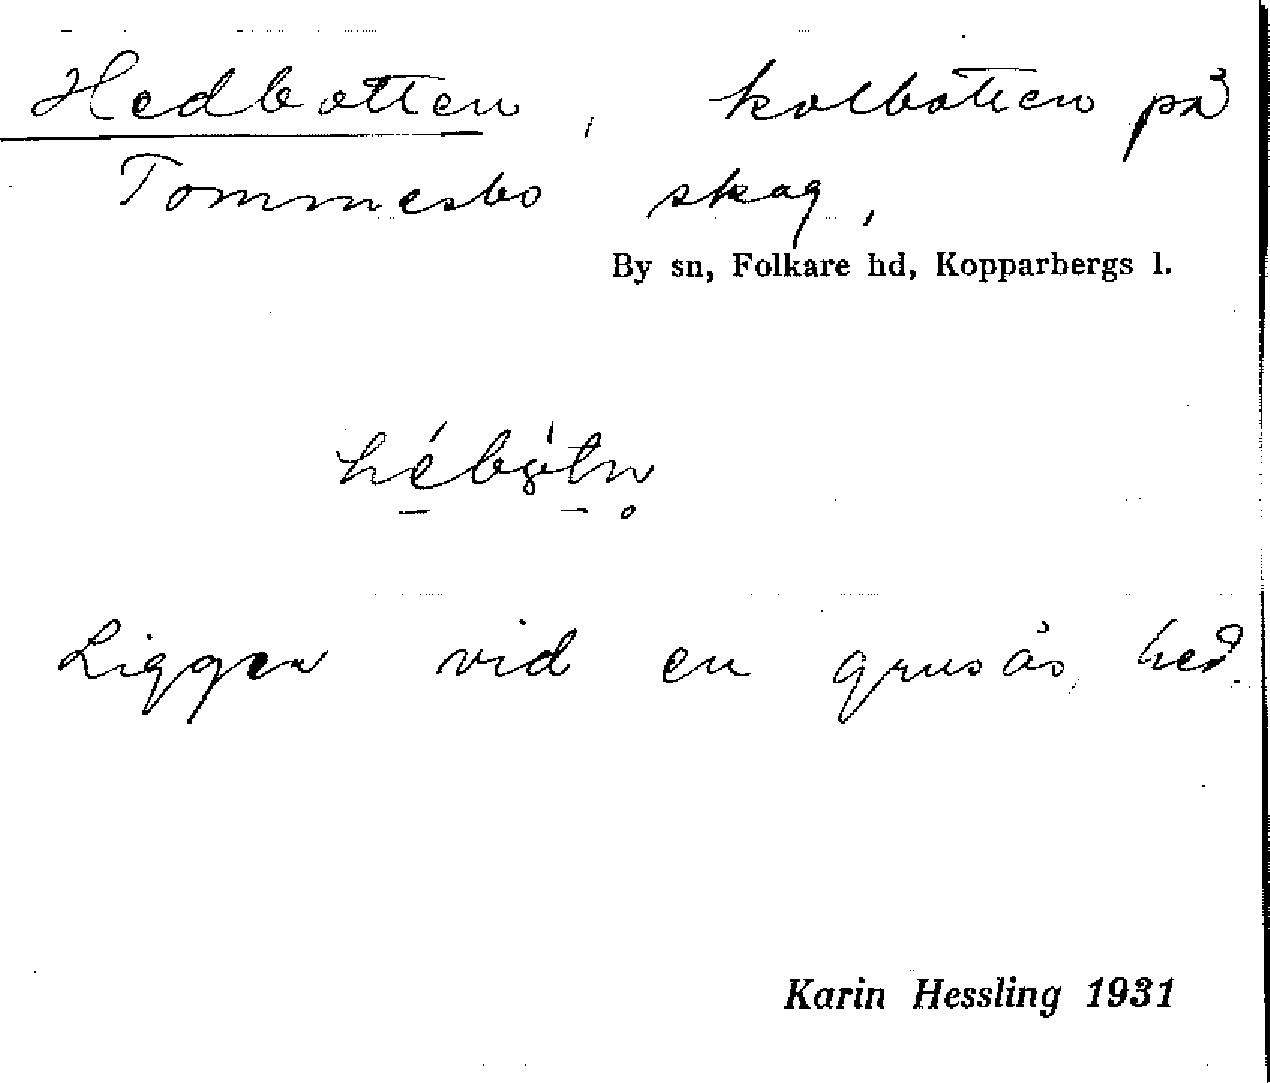 Hedbotten, kolbotten på
Tommesbo skog,
By sn, Folkare hd, Kopparbergs l.
Ligger vid en grusås, hed.
Karin Hessling 1931